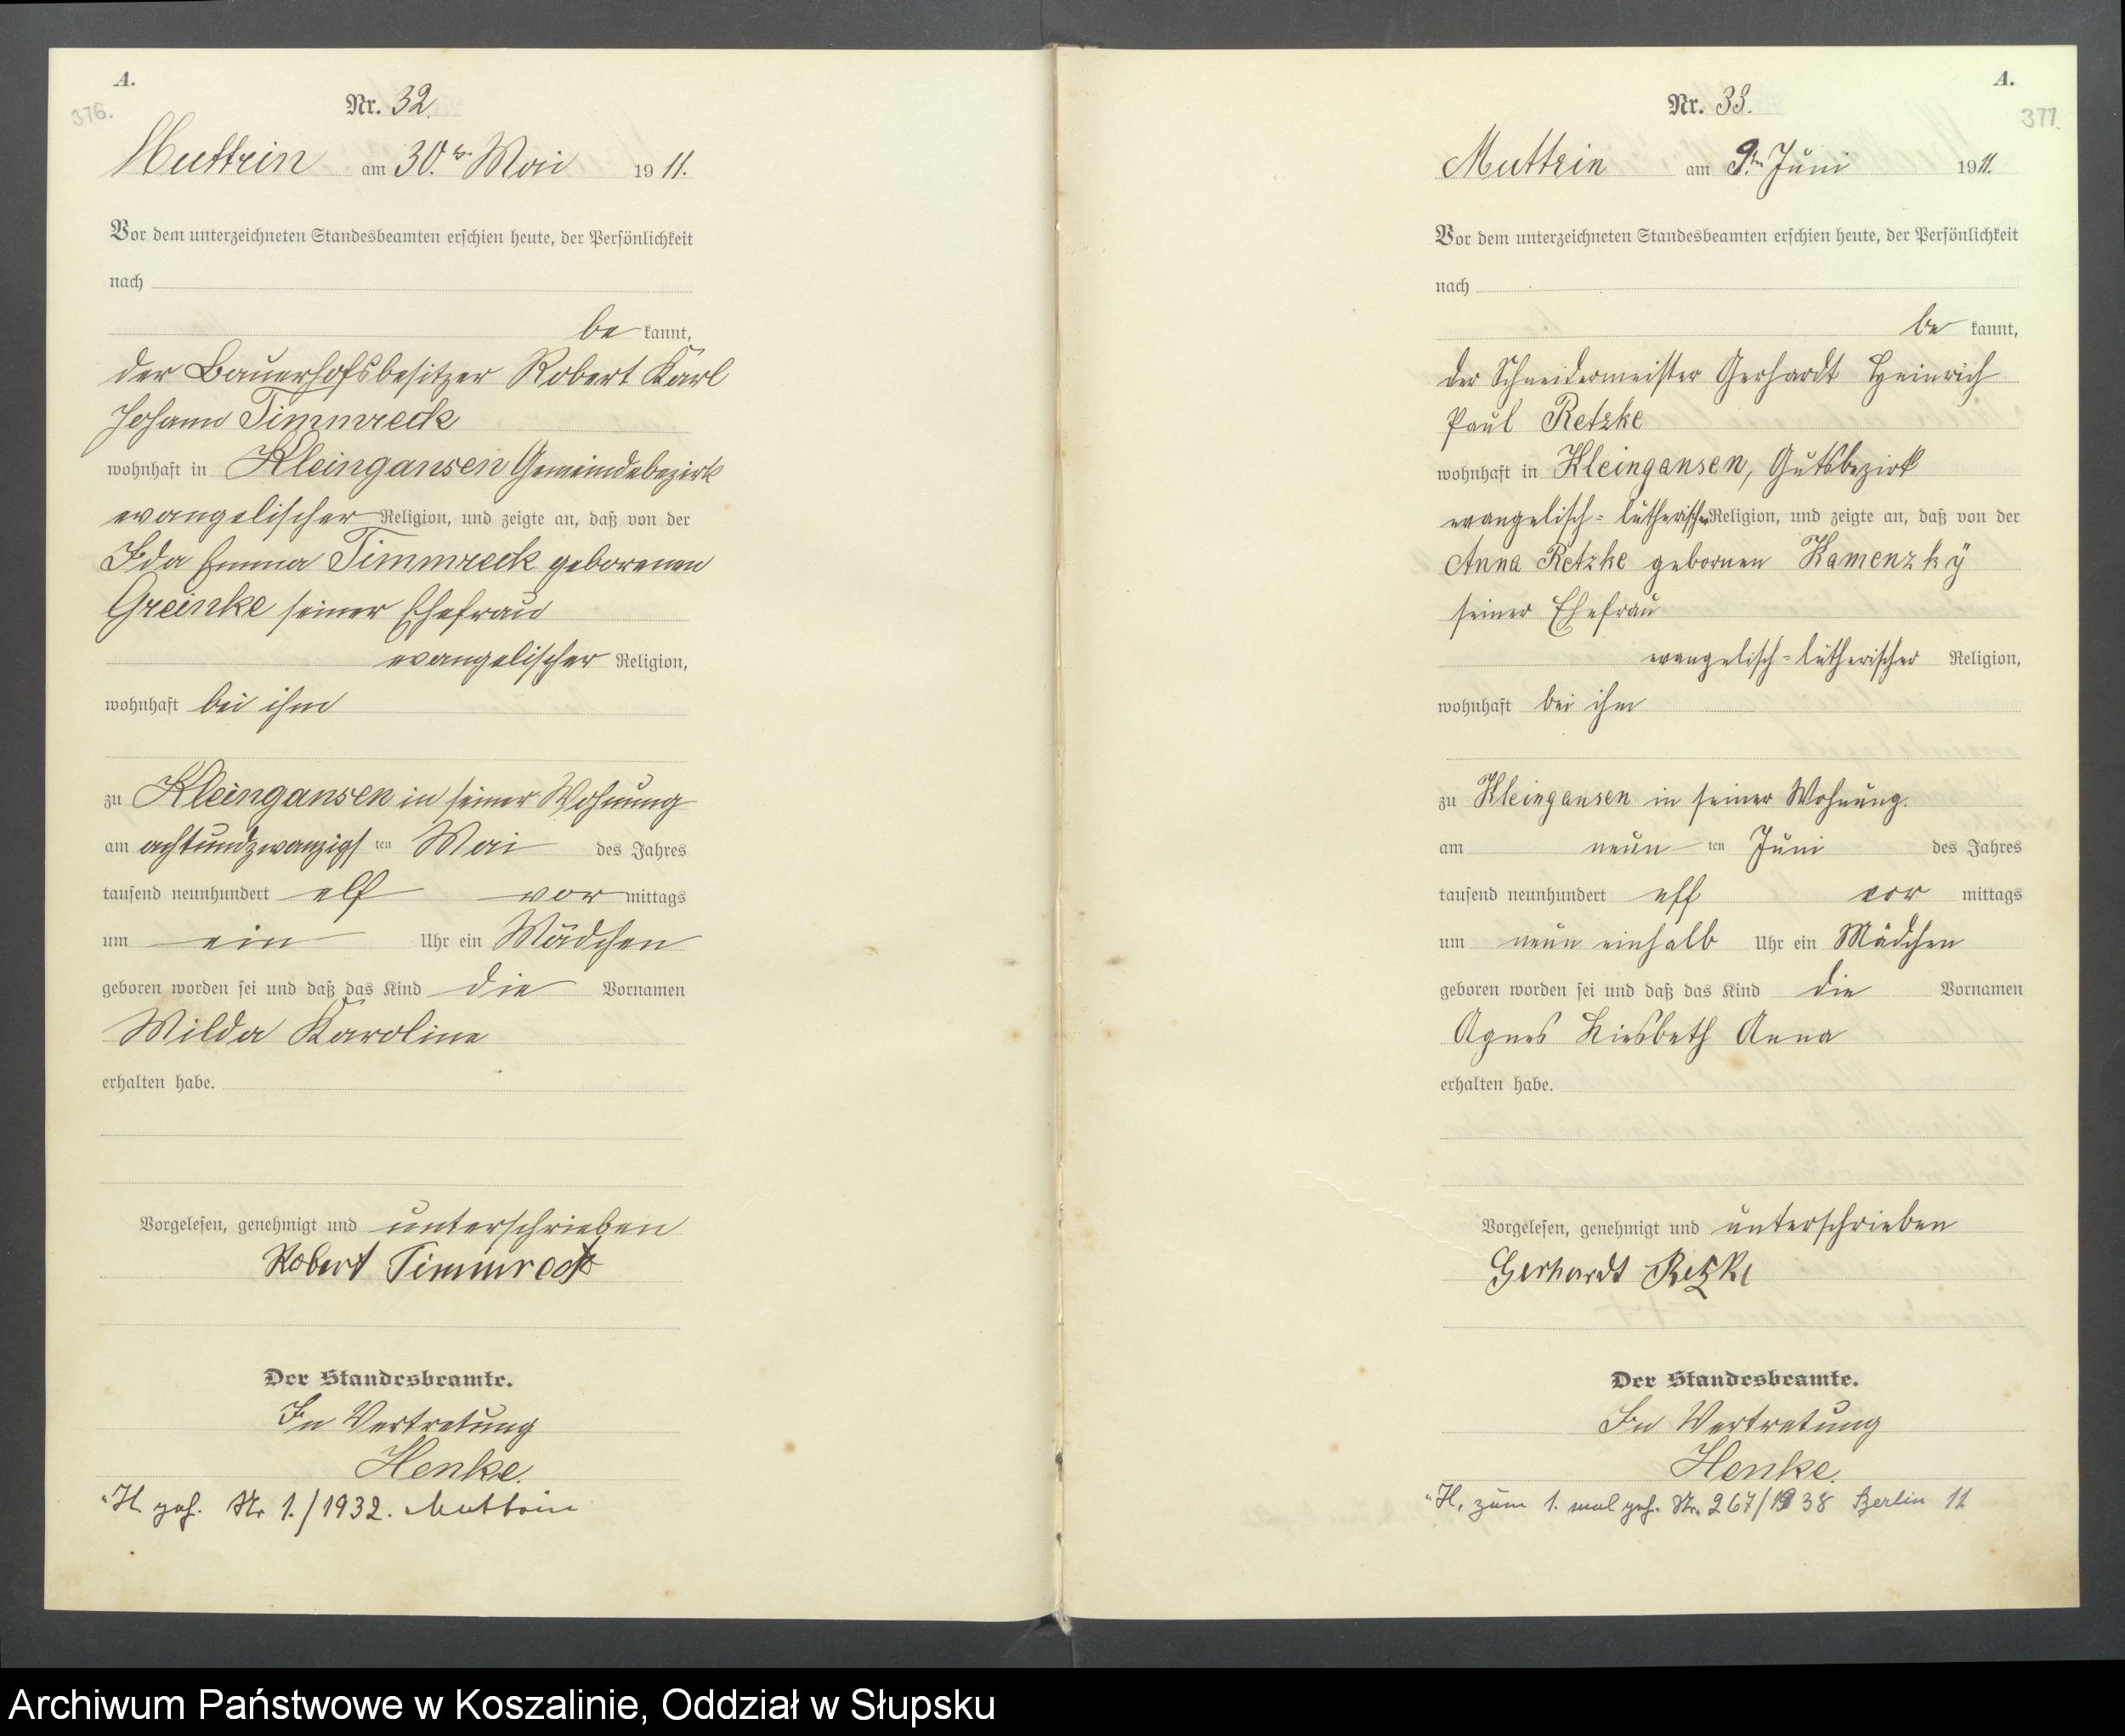 A.
376.
Nr. 32.
Muttrin am 30.ten Mai 1911.
Vor dem unterzeichneten Standesbeamten erschien heute, der Persönlichkeit
nach
be kannt,
der Bauerhofsbesitzer Robert Karl
Johann Timmreck
wohnhaft in Kleingansen Gemeindebezirk
evangelischer Religion, und zeigte an, daß von der
Ida Emma Timmreck geborenen
Greinke seiner Ehefrau
evangelischer Religion,
wohnhaft bei ihm
zu Kleingansen in seiner Wohnung
am achtundzwanzigsten Mai des Jahres
tausend neunhundert elf vor mittags
um ein Uhr ein Mädchen
geboren worden sei und daß das Kind die Vornamen
Wilda Karoline
erhalten habe.
Vorgelesen, genehmigt und unterschrieben
Robert Timmreck
Der Standesbeamte.
In Vertretung
Henke.
H. geh. Nr 1./1932. Muttrin
A.
377.
Nr. 33.
Muttrin am 9.ten Juni 1911.
Vor dem unterzeichneten Standesbeamten erschien heute, der Persönlichkeit
nach
be kannt,
der Schneidermeister Gerhardt Heinrich
Paul Retzke
wohnhaft in Kleingansen, Gutsbezirk
evangelisch-lutherischer Religion, und zeigte an, daß von der
Anna Retzke gebornen Kamenzky
seiner Ehefrau
evangelisch-lutherischer Religion,
wohnhaft bei ihm
zu Kleingansen in seiner Wohnung.
am neun ten Juni des Jahres
tausend neunhundert elf vor mittags
um neun einhalb Uhr ein Mädchen
geboren worden sei und daß das Kind die Vornamen
Agnes Liesbeth Anna
erhalten habe.
Vorgelesen, genehmigt und unterschrieben
Gerhardt Retzke
Der Standesbeamte.
In Vertretung
Henke.
H. zum 1. mal geh. Nr. 267/1938 Berlin 11
Archiwum Państwowe w Koszalinie, Oddział w Słupsku